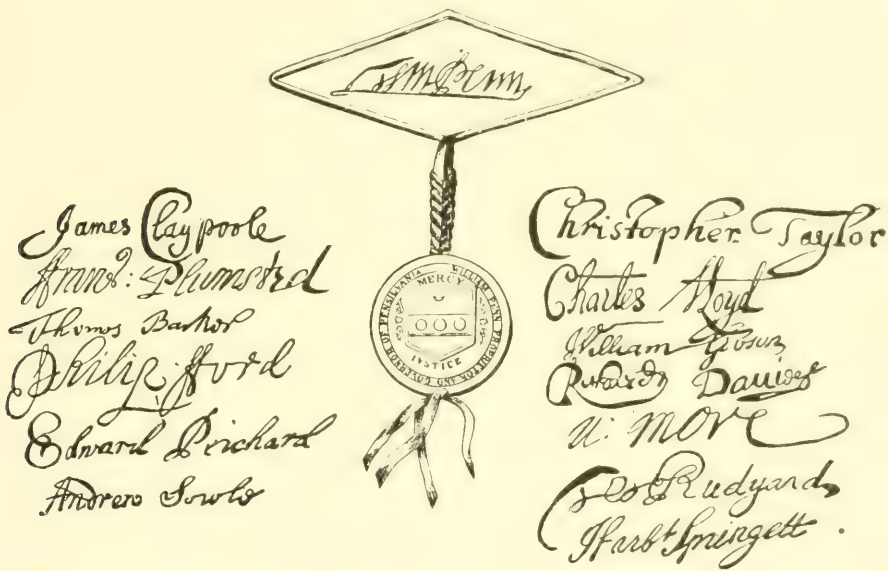 Wm Penn
James Claypoole
ffranc^s: Plumsted
Thomas Barker
Philip fford
Edward Prichard
Andrew Sowle
WILLIAM PENN PROPRIETOR AND GOVERNOR OF PENSILVANIA
MERCY
IVSTICE
Christopher Taylor
Charles Lloyd
William Gibson
Richard Davies
N: More
Geo Rudyard
Harbt Springett.